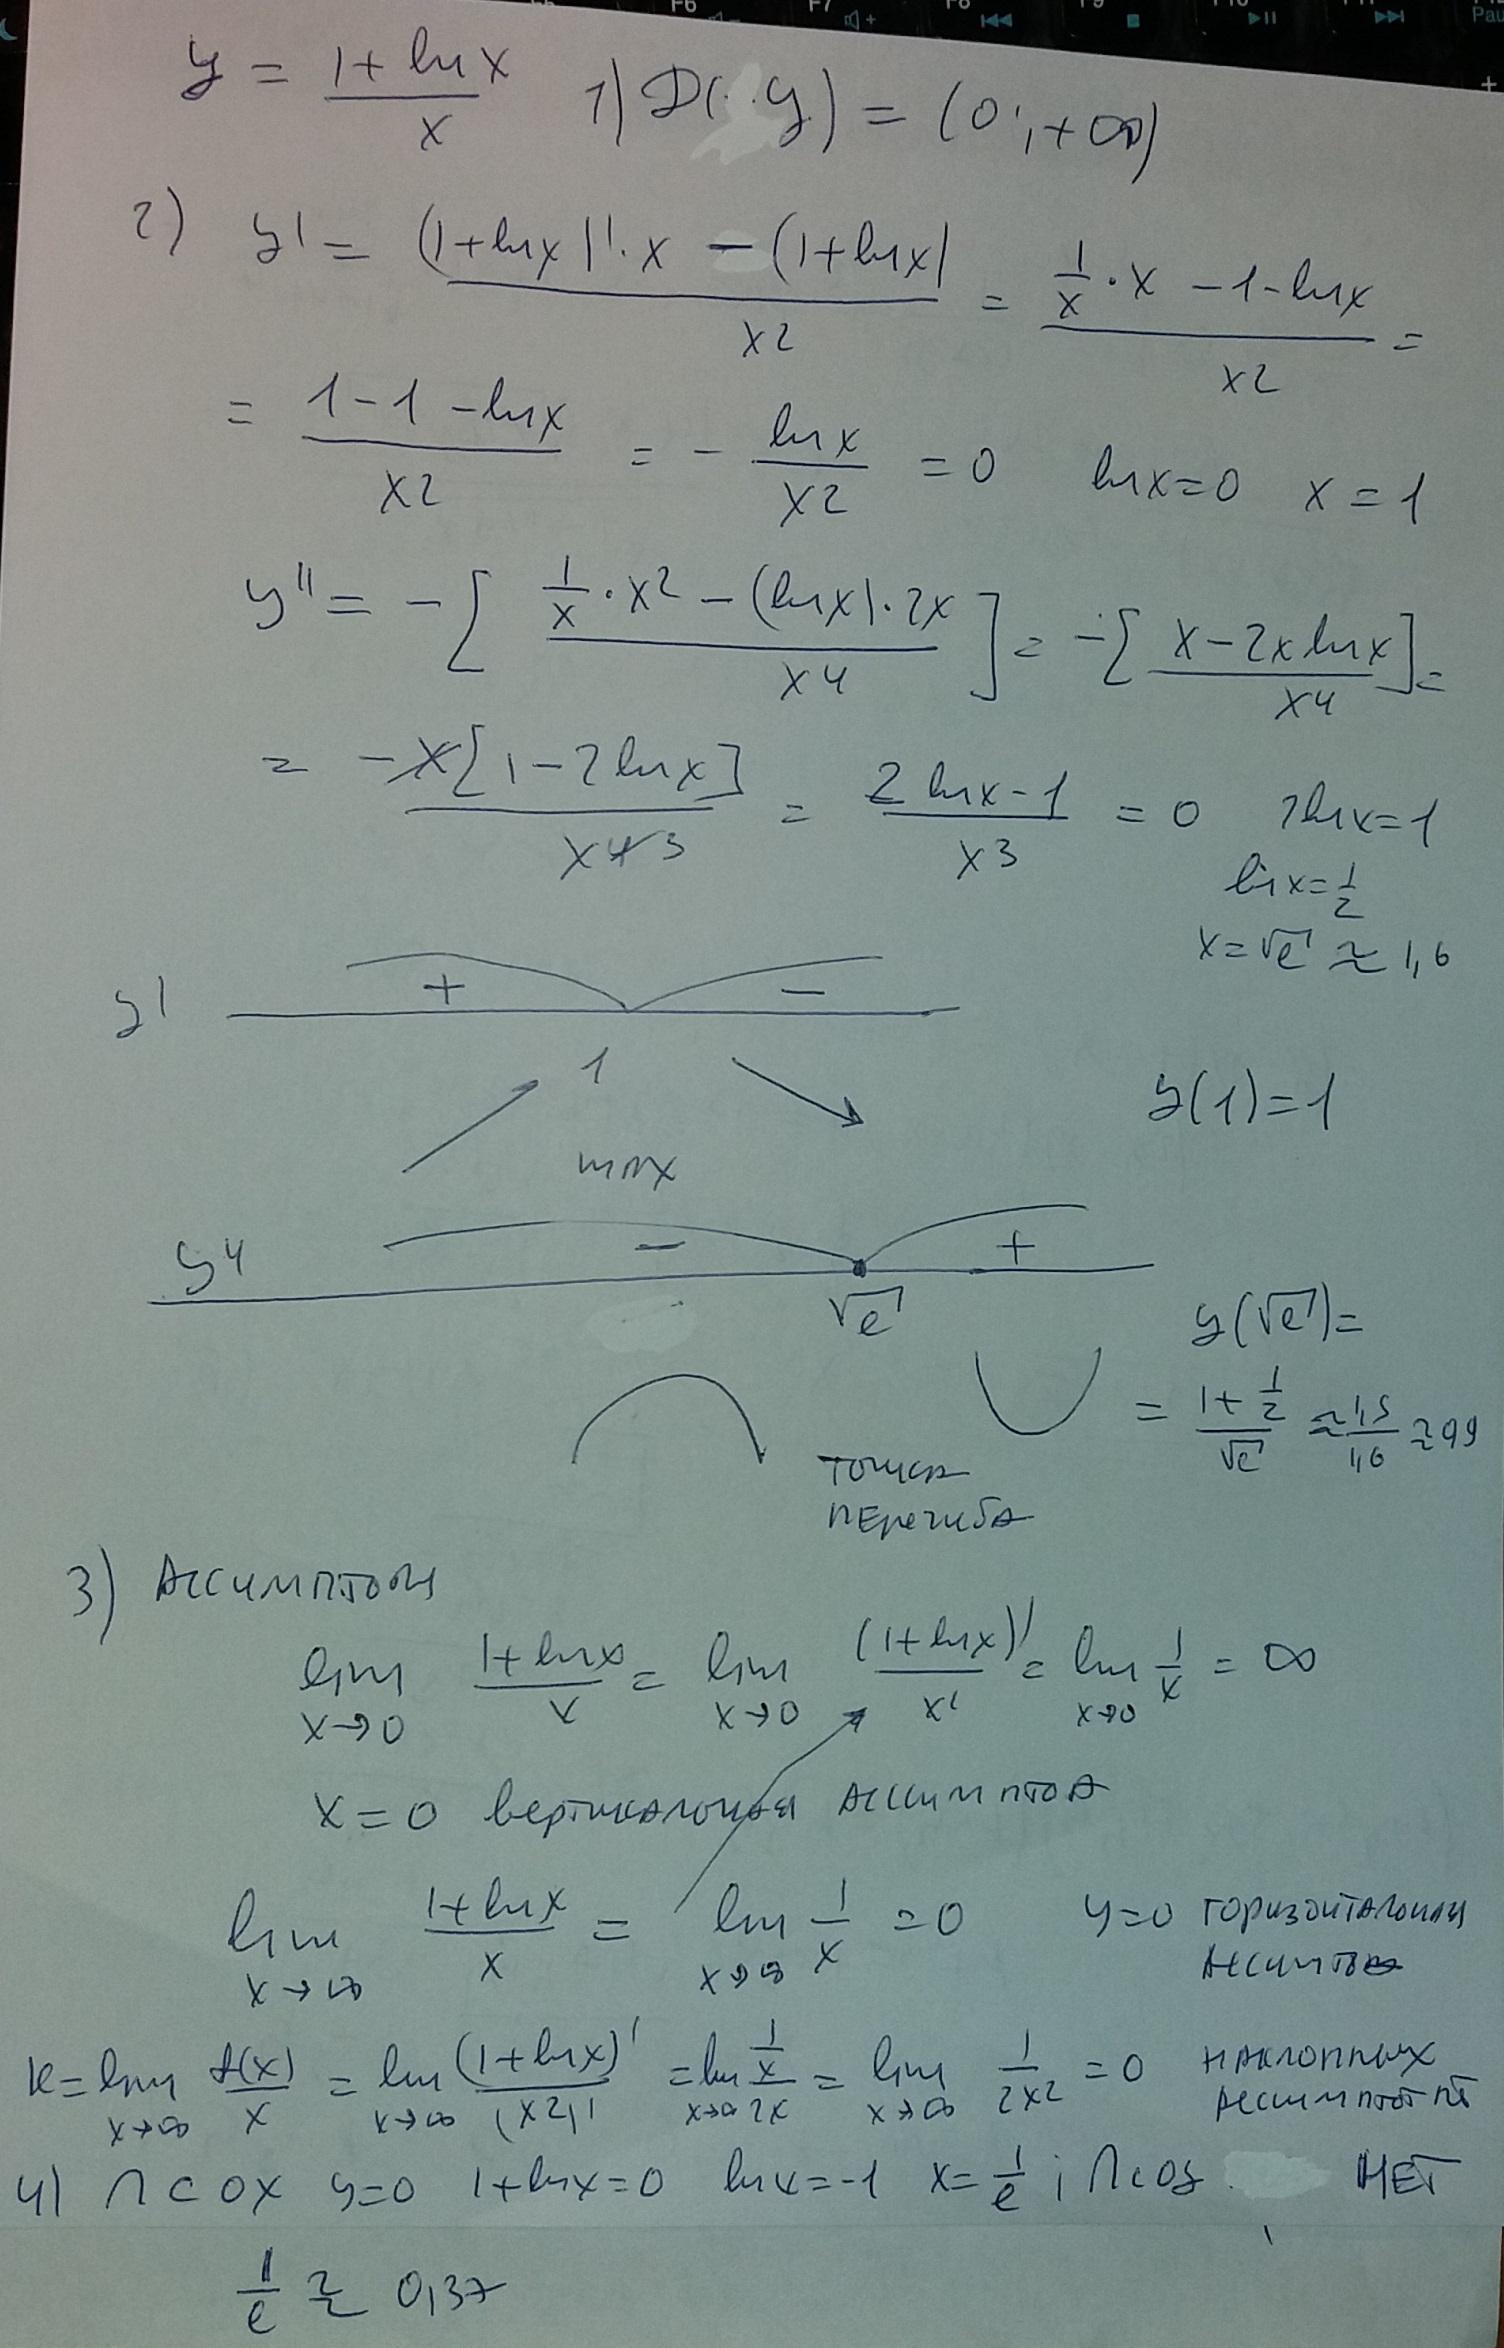 F6 F7 F8 F9 Pau
y = (1 + ln x)/x 1) D(y) = (0; +∞)
2) y' = ((1+ln x)'·x − (1+ln x))/x2 = (1/x · x − 1 − ln x)/x2 =
= (1−1−ln x)/x2 = − ln x/x2 = 0 ln x = 0 x = 1
y'' = −[(1/x · x2 − (ln x)·2x)/x4] = −[(x − 2x ln x)/x4] =
= −x[1−2 ln x]/x43 = (2 ln x − 1)/x3 = 0 2 ln x = 1
ln x = 1/2
x = √e ≈ 1,6
y' + −
1
y(1) = 1
max
y'' − +
√e
y(√e) =
= (1 + 1/2)/√e ≈ 1,5/1,6 ≈ 0,9
точка
перегиба
3) Ассимптоты
lim x→0 (1+ln x)/x = lim x→0 (1+ln x)'/x' = lim x→0 1/x = ∞
x = 0 вертикальная Ассимптота
lim x→∞ (1+ln x)/x = lim x→∞ 1/x = 0 y=0 горизонтальная
k = lim x→∞ f(x)/x = lim x→∞ (1+ln x)'/(x2)' = lim x→∞ (1/x)/2x = lim x→∞ 1/2x2 = 0 наклонных
4) ∩ с ОХ y=0 1+ln x=0 ln x=−1 x = 1/e ; ∩ с Оу НЕТ
1/e ≈ 0,37